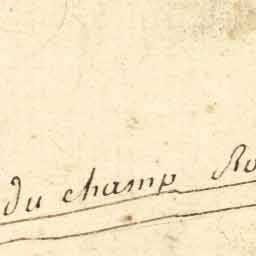 du champ Ro